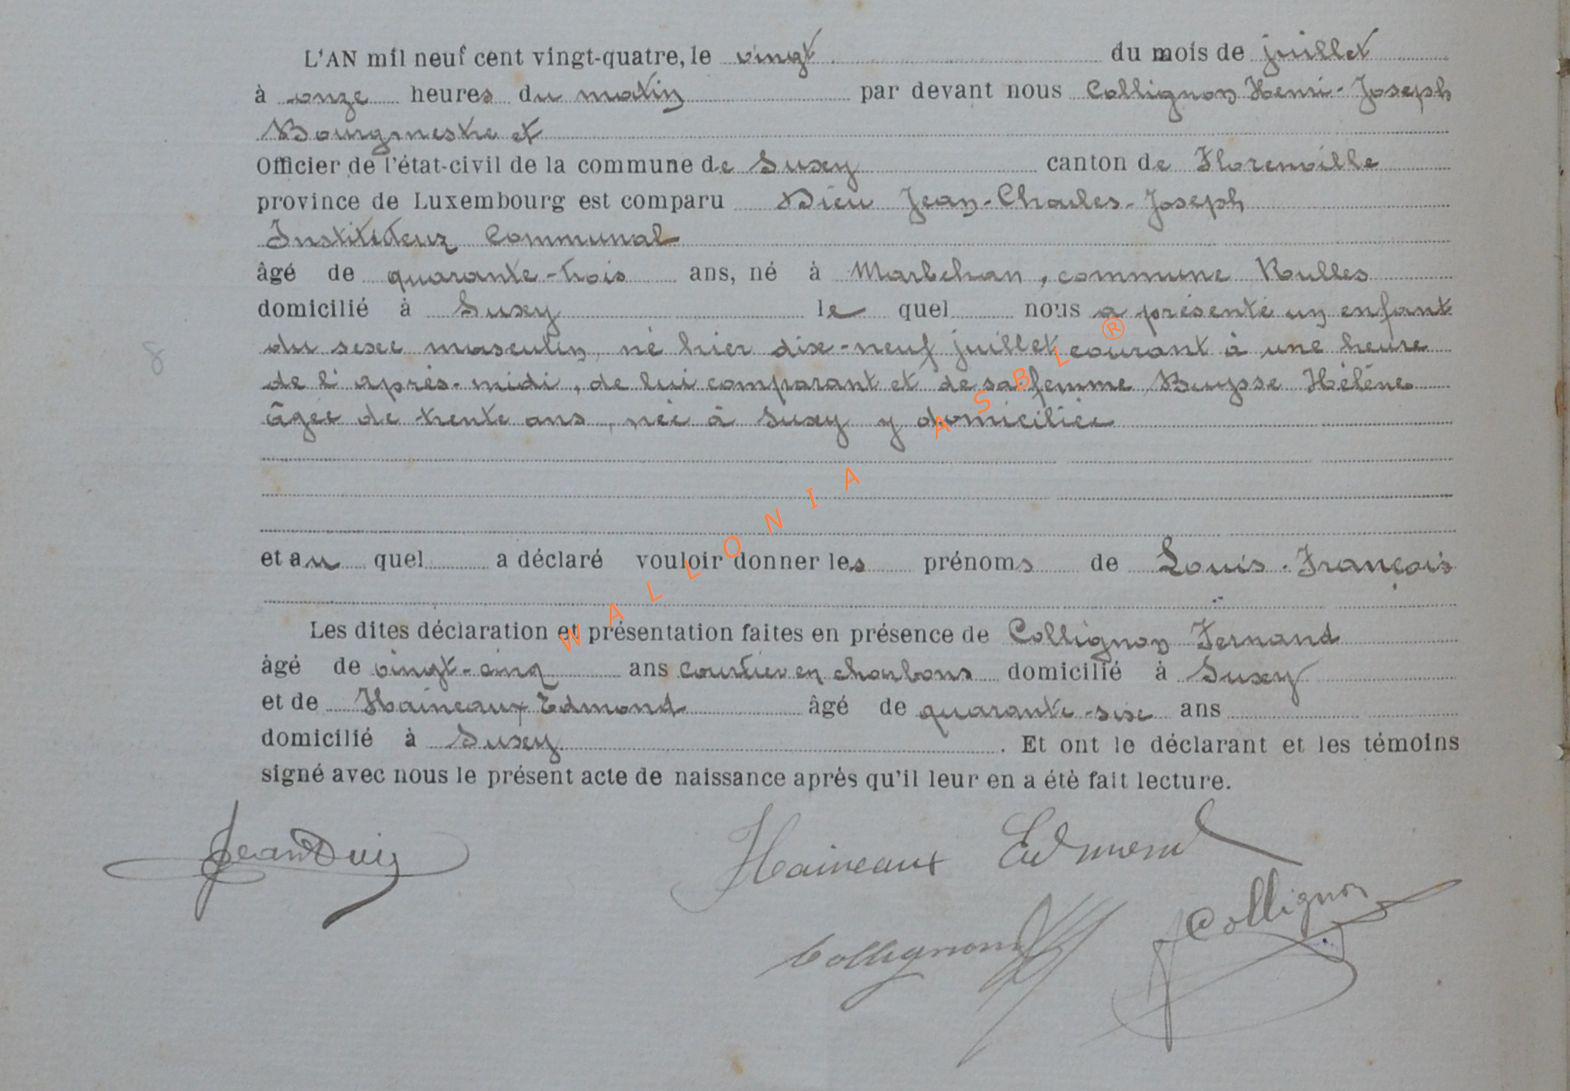 L'AN mil neuf cent vingt-quatre, le vingt du mois de juillet
à onze heures du matin par devant nous Collignon Henri-Joseph
Bourgmestre et
Officier de l'état-civil de la commune de Suxy canton de Florenville
province de Luxembourg est comparu Dieu Jean-Charles-Joseph
Instituteur Communal
âgé de quarante-trois ans, né à Marbehan, commune Rulles
domicilié à Suxy le quel nous a présenté un enfant
du sexe masculin, né hier dix-neuf juillet courant à une heure
de l'après-midi, de lui comparant et de sa femme Buysse Hélène
âgée de trente ans, née à Suxy y domiciliée
et au quel a déclaré vouloir donner les prénoms de Louis-François
Les dites déclaration et présentation faites en présence de Collignon Fernand
âgé de vingt-cinq ans courtier en charbons domicilié à Suxy
et de Haineaux Edmond âgé de quarante-six ans
domicilié à Suxy. Et ont le déclarant et les témoins
signé avec nous le présent acte de naissance après qu'il leur en a étè fait lecture.
Haineaux Edmond
Collignon
Collignon
8
WALLONIA ASBL ®